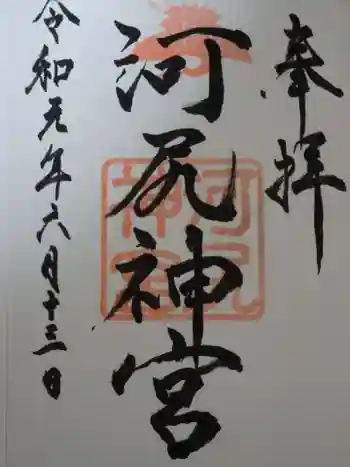 奉拝
河尻神宮
河尻神宮
令和元年六月十三日